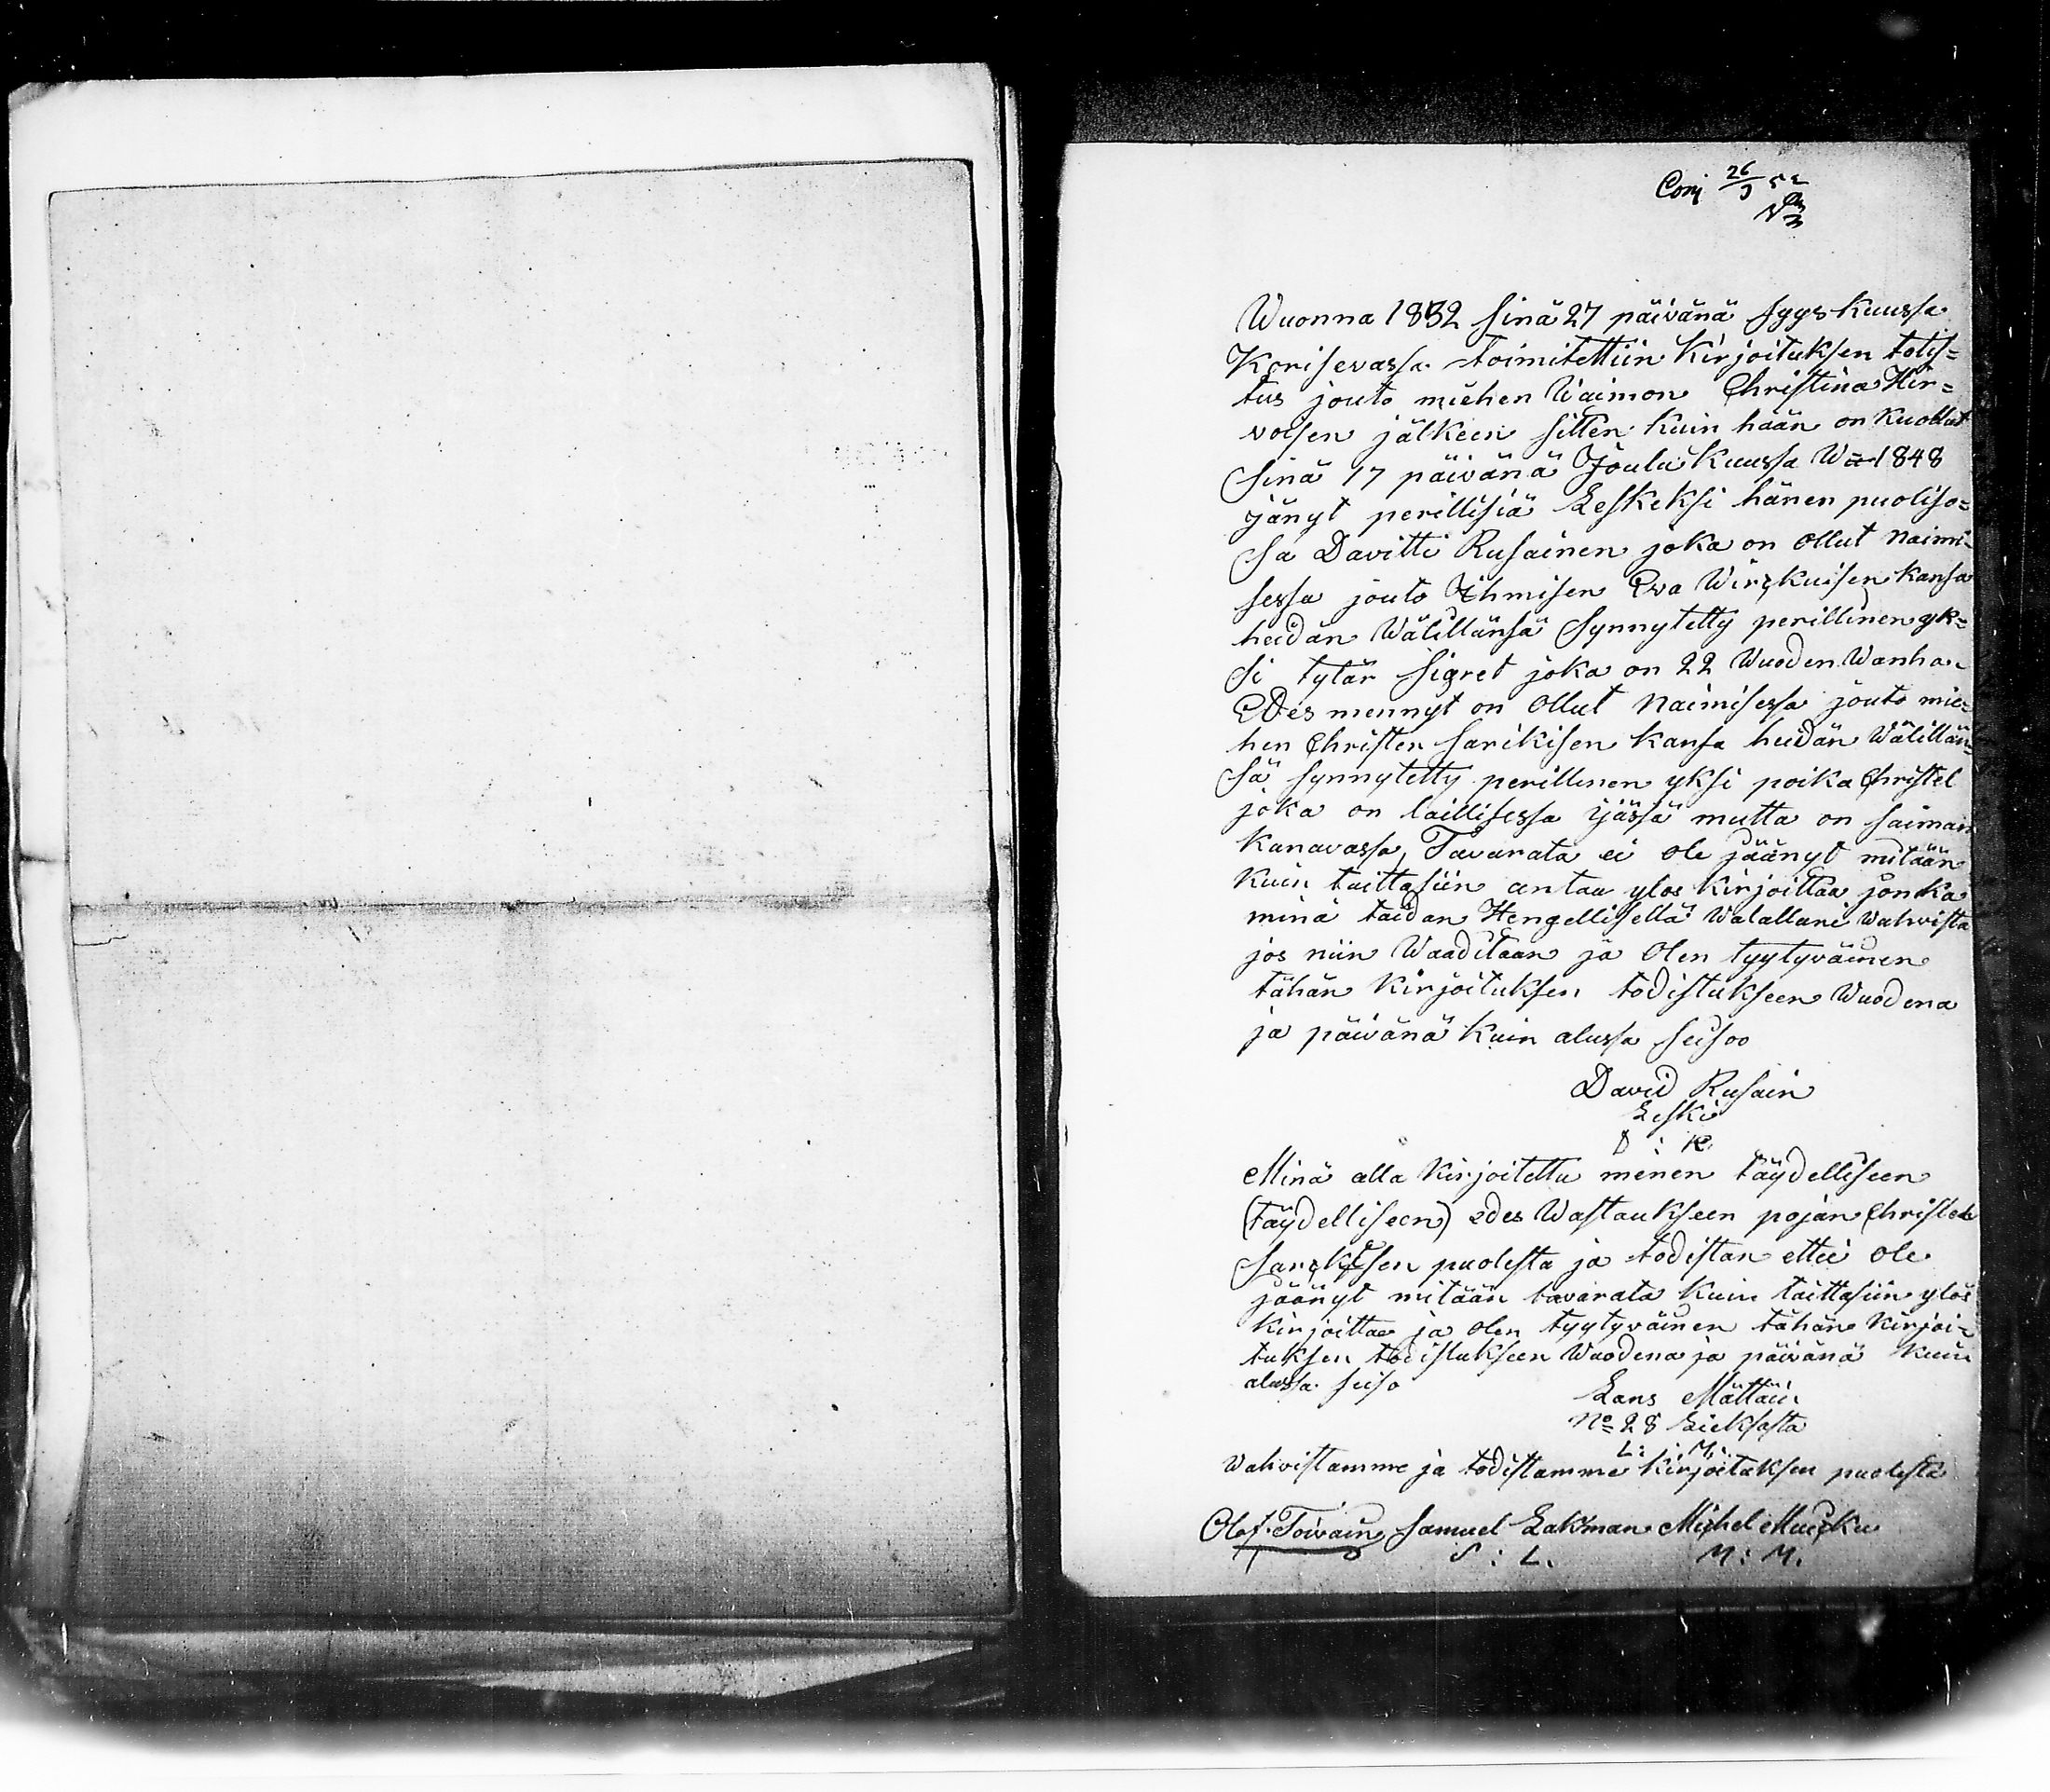 26/9 52
Wuonna 1852 sinä 27 päivänä syyskuussa
Korisevassa toimitettiin Kirjoituksen totis=
tus jouto miehen Waimon Christina Hir=
voisen jälkeen sitten kuin hään on Kuollut
sinä 17 päivänä Joulu Kuussa Wa 1848
jänyt perillisiä Leskeksi hänen puoliso=
sa Davitti Rusainen joka on ollut naimi=
sessa jouto Ihmisen Eva Wirkkuisen kansa
heidän Wälillänsä synnytetty perillinen yk=
si tytär Sigret joka on 22 Wuoden Wanha.
Edes mennyt on ollut Naimisessa jouto mie=
hen Christer Sarikisen kansa heidän Wälillän=
sä synnytetty perillinen yksi poika Christel
joka on laillisessa ijässä mutta on saiman
kanavassa, Tavarata ei ole jäänyt mitään
Kuin taittasiin antaa ylos kirjoittaa jonka
minä taidan Hengellisellä Walallani Wahvista
jos niin Waaditaan ja Olen tyytyväinen
tähän Kirjoituksen todistukseen Wuodena
ja päivänä Kuin alussa seisoo
David Rusain
Leski
D : R
Minä alla Kirjoitettu menen täydelliseen
(täydelliseen) edes Wastaukseen pojan Christer
puolesta ja todistan ettei ole
jäänyt mitään tavarata Kuin taittasiin ylös
Kirjoittaa ja olen tyytyväinen tähän Kirjoi=
tuksen todistukseen Wuodena ja päivänä kuin
alussa seiso
Lars Mättäin
No 28 Lieksasta
L: M:
Wahvistamme ja todistamme Kirjoituksen puolesta
Olof Toivain Samuel Lakman Michel
S : L. M : M.